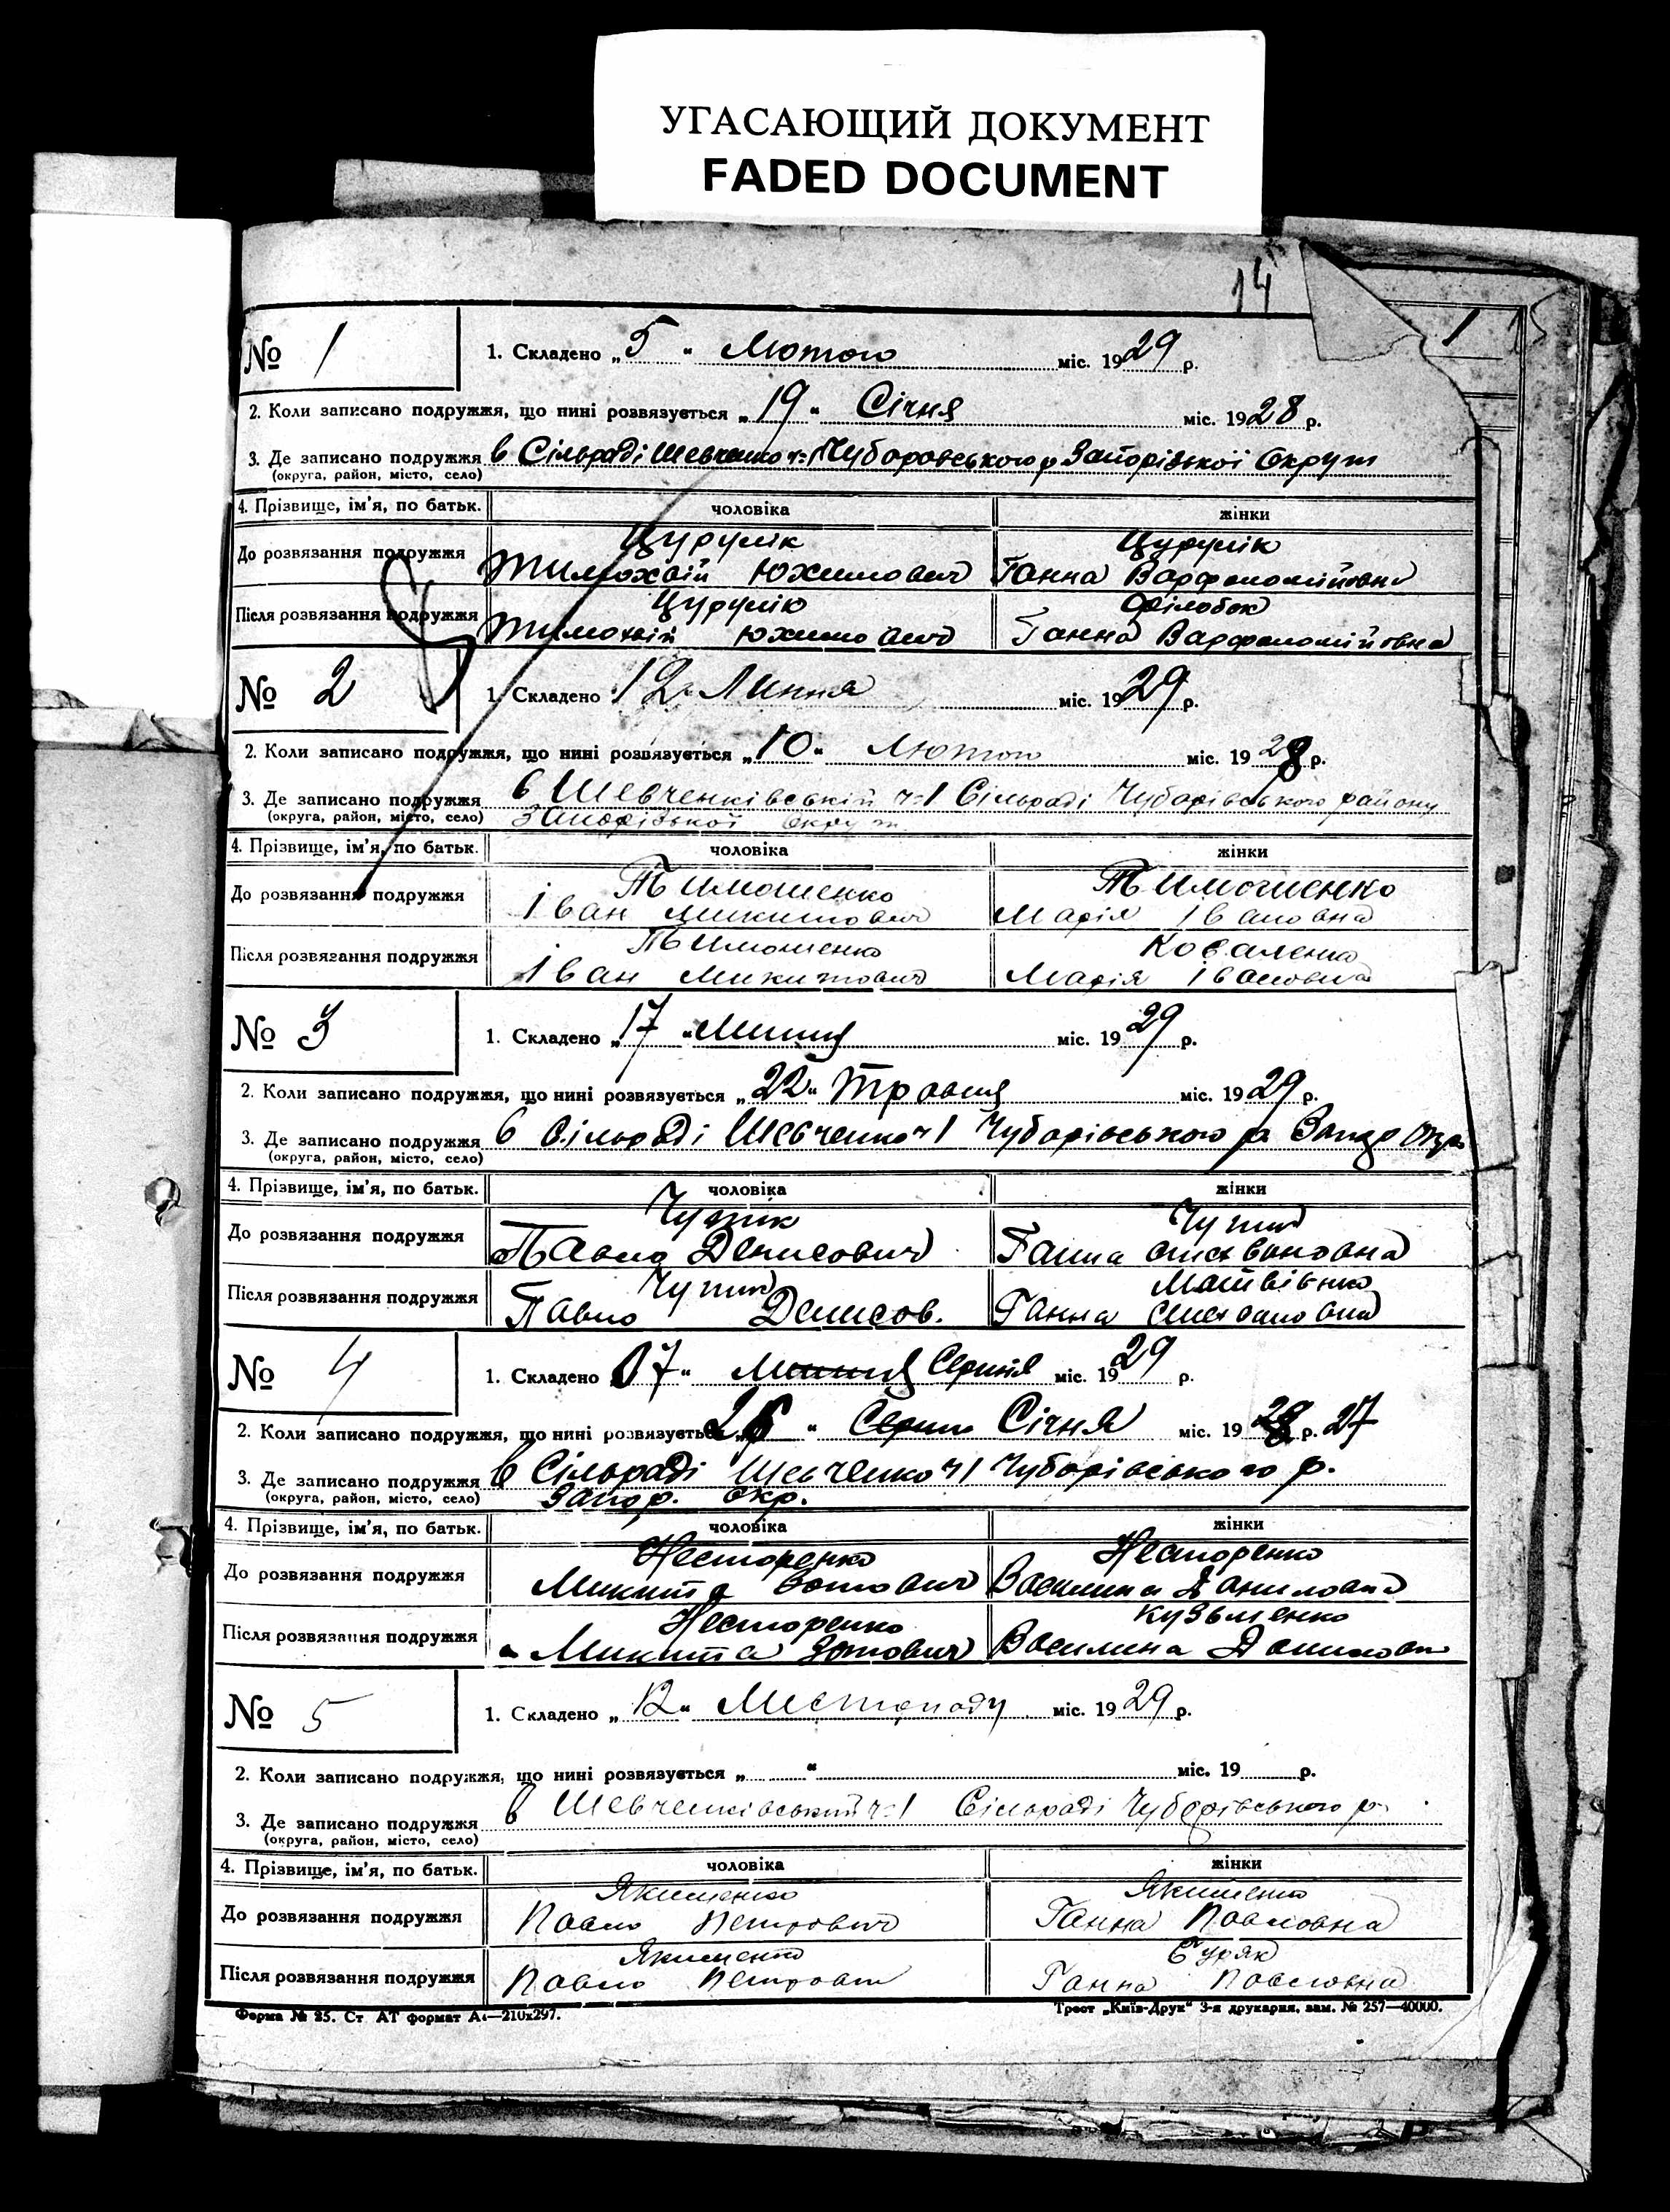 УГАСАЮЩИЙ ДОКУМЕНТ
FADED DOCUMENT
14
1
№ 1
1. Складено „5“ Лютого міс. 1929 р.
2. Коли записано подружжя, що нині розвязується „19“ Січня міс. 1928 р.
3. Де записано подружжя в Сільраді Шевченко ч=1 Чубаровського р Запорізької Округи
(округа, район, місто, село)
4. Прізвище, ім'я, по батьк. чоловіка жінки
Цурулік Цурулік
До розвязання подружжя Тимохвій Юхимович Ганна Варфоломійовна
Цурулік Філобок
Після розвязання подружжя Тимохвій Юхимович Ганна Варфоломійовна
№ 2
1. Складено 12 Липня міс. 1929 р.
2. Коли записано подружжя, що нині розвязується „10“ Лютого міс. 1928 р.
3. Де записано подружжя в Шевченківській ч=1 Сільраді Чубарівського району
(округа, район, місто, село) Запорізької округи
4. Прізвище, ім'я, по батьк. чоловіка жінки
Тимошенко Тимошенко
До розвязання подружжя Іван Микитович Марія Івановна
Тимошенко Коваленко
Після розвязання подружжя Іван Микитович Марія Івановна
№ 3
1. Складено „17“ Липня міс. 1929 р.
2. Коли записано подружжя, що нині розвязується „22“ Травня міс. 1929 р.
3. Де записано подружжя в Сільраді Шевченко ч1 Чубарівського р
(округа, район, місто, село)
4. Прізвище, ім'я, по батьк. чоловіка жінки
До розвязання подружжя Павло Денисович Ганна
Матвієнко
Після розвязання подружжя Павло Денисов. Ганна
№ 4
1. Складено 07“ Липня Серпня міс. 1929 р.
2. Коли записано подружжя, що нині розвязується „26“ Серпня Січня міс. 1928 р. 27
3. Де записано подружжя в Сільраді Шевченко ч1 Чубарівського р.
(округа, район, місто, село) Запор. окр.
4. Прізвище, ім'я, по батьк. чоловіка жінки
Несторенко Несторенко
До розвязання подружжя Микита Зотович Василина Даниловна
Несторенко Кузьменко
Після розвязання подружжя Микита Зотович Василина Данилови
№ 5
1. Складено „12“ Листопаду міс. 1929 р.
2. Коли записано подружжя, що нині розвязується „ “ міс. 19 р.
3. Де записано подружжя в Шевченківський ч=1 Сільраді Чубарівського р.
(округа, район, місто, село)
4. Прізвище, ім'я, по батьк. чоловіка жінки
Якименко Якименко
До розвязання подружжя Павло Петрович Ганна Павловна
Якименко Буряк
Після розвязання подружжя Павло Петрович Ганна Павловна
Форма № 25. Ст. АТ формат А4—210х297. Трест „Київ-Друк“ 3-я друкарня, зам. № 257—40000.